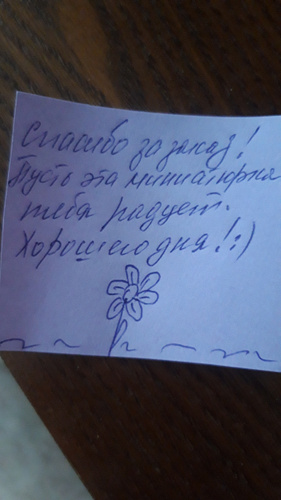 Спасибо за заказ!
Пусть эта миниатюрка
тебя радует.
Хорошего дня!:)